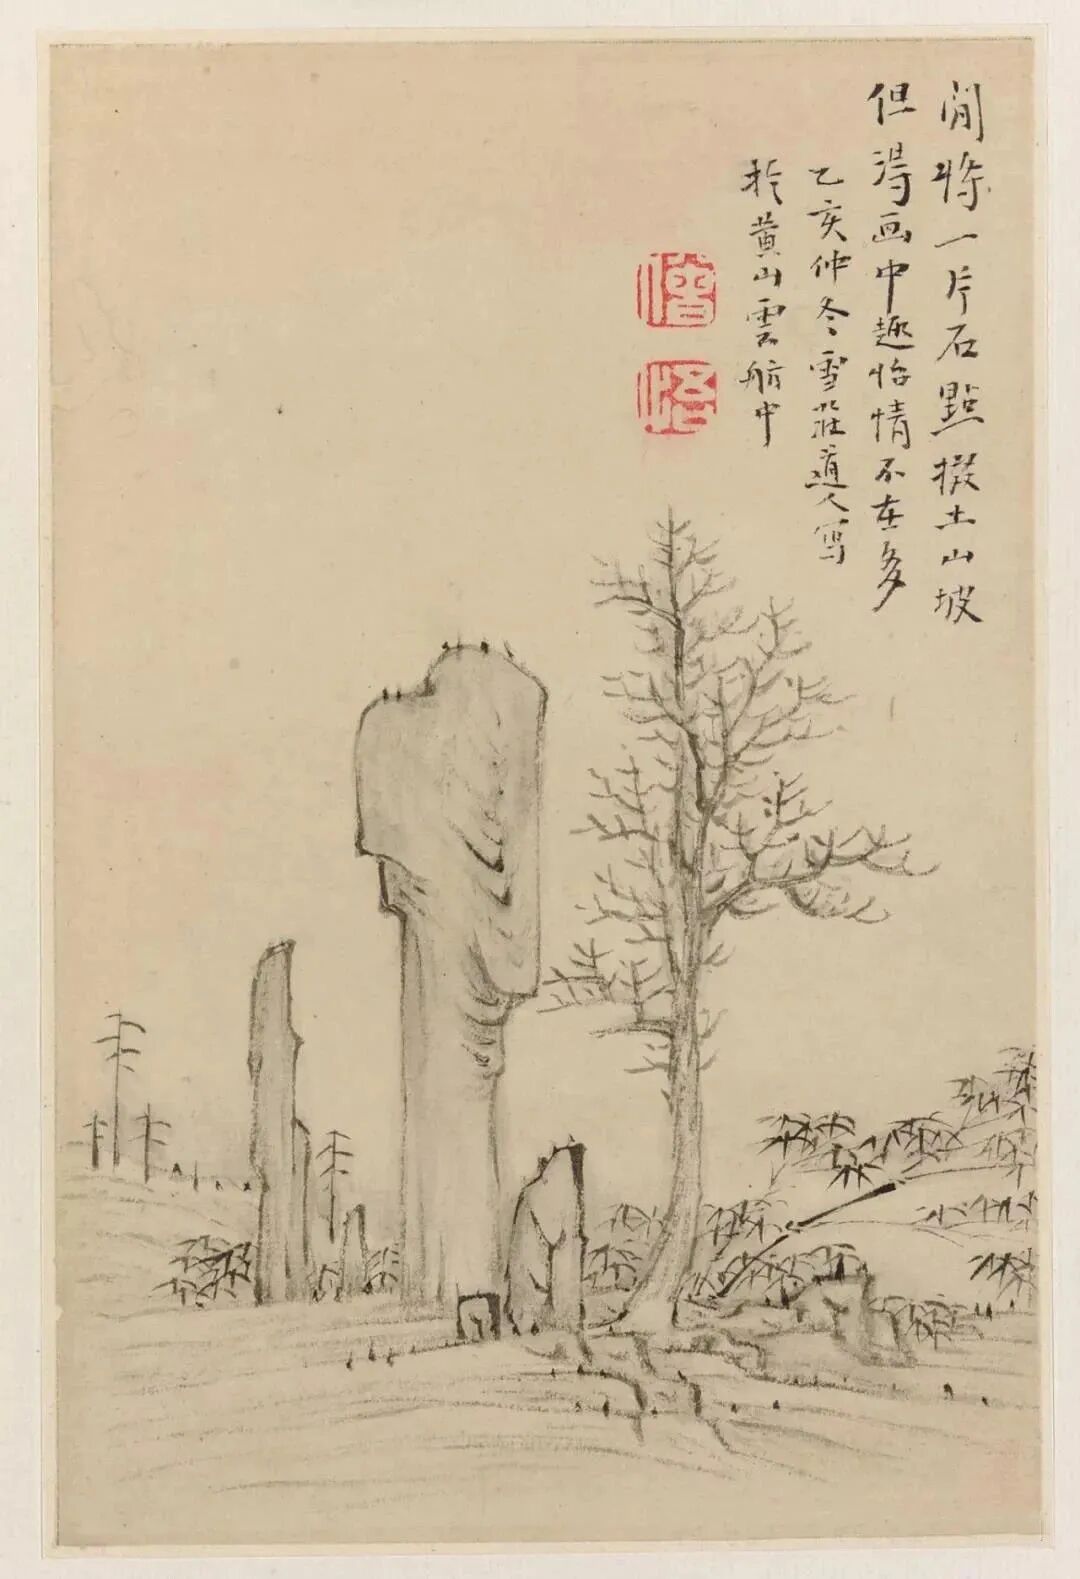 閒将一片石點掇土山坡
但得画中趣怡情不在多
乙亥仲冬雪莊道人写
於黄山雲舫中
僧
悟